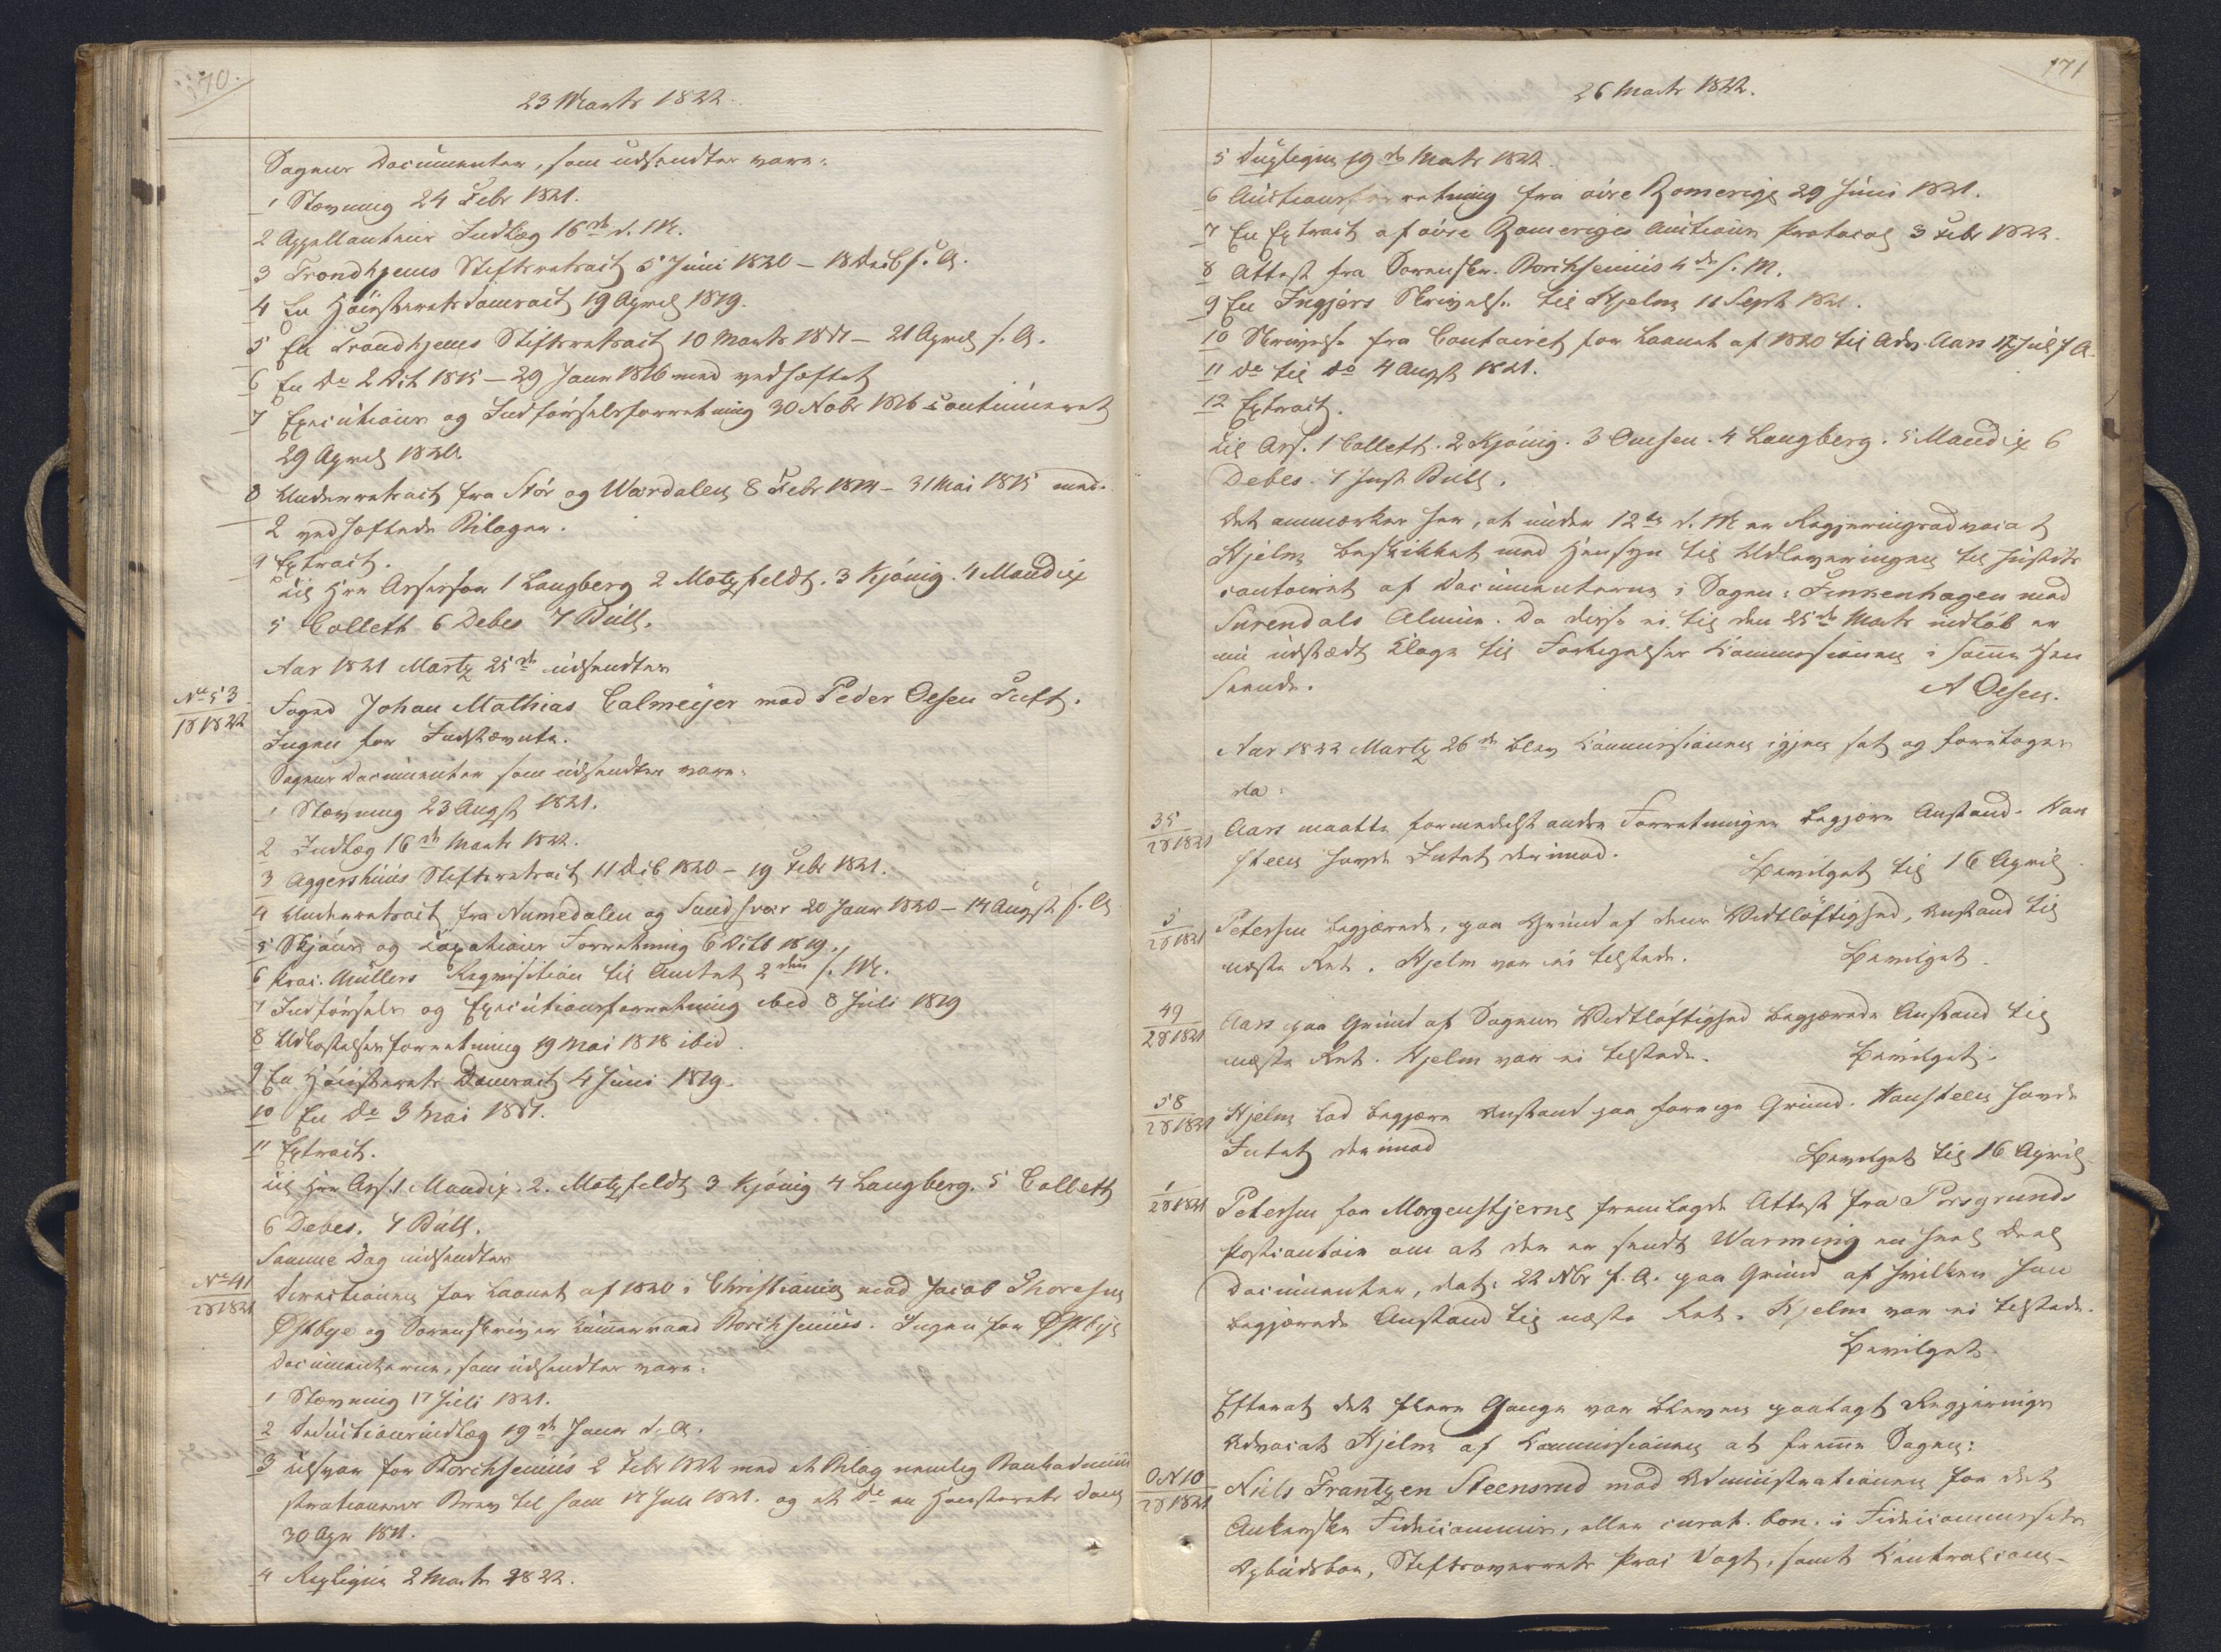 170.
23 Marts 1822.
Sagens Documenter, som udsendtes vare:
1 Stævning 24 Febr 1821.
2 Appellantens Indlæg 16de d. M.
3 Trondhjems Stiftsretsact 5 Juni 1820 – 18 Decb s. A.
4 En Høiesterets Domsact 19 April 1819.
5 En Trondhjems Stiftsretsact 10 Marts 1817 – 21 April s. A.
6 En do 2 Oct 1815 – 29 Janr 1816 med vedhæftet
7 Executions og Indførselsforretning 30 Nobr 1816 continueret
29 April 1820.
8 Underretsact fra Stør og Wærdalen 8 Febr 1814 – 31 Mai 1815 med
2 vedhæftede Bilager.
9 Extract.
Til Hrr Assessor 1 Langberg 2 Motzfeldt. 3 Kjønig. 4 Mandix
5 Collett 6 Debes 7 Bull.
Aar 1821 Martz 25de udsendtes
No 53
18 1822
Foged Johan Mathias Calmeijer mod Peder Olsen Tuft.
Ingen for Indstævnte.
Sagens Documenter som udsendtes vare:
1 Stævning 23 Augst 1821.
2 Indlæg 16de Marts 1822.
3 Aggershuus Stiftsretsact 11 Decb 1820 – 19 Febr 1821.
4 Underretsact fra Numedalen og Sandsvær 20 Janr 1820 – 14 Augst s. A
5 Skjøns og Taxations Forretning 6 Octb 1819.
6 Proc. Müllers Reqvisition til Amtet 2den s. M.
7 Indførsels og Executionsforretning ibid 8 Juli 1819
8 Udkastelsesforretning 19 Mai 1818 ibid.
9 En Høiesterets Domsact 4 Juni 1819.
10 En do 3 Mai 1817.
11 Extract.
Til Hrr Ass. 1 Mandix. 2. Motzfeldt 3 Kjønig 4 Langberg. 5 Collett
6 Debes. 7 Bull.
Samme Dag udsendtes
No 41
28 1821
Directionen for Laanet af 1820 i Christiania mod Jacob Thoresen
Østbye og Sorenskriver Kammerraad Borchsenius. Ingen for Østbye
Documenterne, som udsendtes vare:
1 Stævning 17 Juli 1821.
2 Deductionsindlæg 19de Janr d. A.
3 Tilsvar for Borchsenius 2 Febr 1822 med et Bilag nemlig Bankadmini
strationens Brev til ham 12 Juli 1821. og et do en Høiesterets Dom
30 Apr 1811.
4 Repliqve 2 Marts 1822.
171
26 Marts 1822.
5 Dupliqve 19de Marts 1822.
6 Auctionsforretning fra øvre Romerige 29 Juni 1821.
7 En Extract af øvre Romeriges Auctions Protocol 3 Febr 1822.
8 Attest fra Sorenskr. Borchsenius 4de s. M.
9 En Ingjers Skrivelse til Hjelm 11 Septb 1821.
10 Skrivelse fra Contoiret for Laanet af 1820 til Adv. Aars 12 Juli s A.
11 do til do 4 Augst 1821.
12 Extract.
Til Ass. 1 Collett. 2 Kjønig. 3 Omsen. 4 Langberg. 5 Mandix 6
Debes. 7 Just. Bull.
Det anmærkes her, at under 12te d. M er Regjeringsadvocat
Hjelm beskikket med Hensyn til Udleveringen til Justits
contoiret af Documenterne i Sagen: Finkenhagen mod
Surendals Almue. Da disse ei til den 25de Marts indløb er
nu udstædt Klage til Forligelses Commissionen i samme Hen
seende.
A Olsen.
Aar 1822 Martz 26de blev Commissionen igjen sat og foretoges
da:
35
28 1821
Aars maatte formedelst andre Forretninger begjære Anstand. Han
steen havde Intet derimod.
Bevilget til 16 April.
5
28 1821
Petersen begjærede, paa Grund af dens Vidtløftighed, Anstand til
næste Ret. Hjelm var ei tilstede.
Bevilget.
49
28 1821
Aars paa Grund af Sagens Vidtløftighed begjærede Anstand til
næste Ret. Hjelm var ei tilstede.
Bevilget.
58
28 1821
Hjelm lod begjære Anstand paa forrige Grund. Hansteen havde
Intet derimod
Bevilget til 16 April
1
28 1821
Petersen for Morgenstjerne fremlagde Attest fra Porsgrunds
Postcontoir om at der er sendt Warming en heel Deel
Documenter, dat: 22 Nbr f. A. paa Grund af hvilken han
begjærede Anstand til næste Ret. Hjelm var ei tilstede.
Bevilget
Efterat det flere Gange var bleven paalagt Regjerings
Advocat Hjelm af Commissionen at fremme Sagen:
O No 10
28 1821
Niels Frantzen Steensrud mod Administrationen for det
Ankerske Fideicommis, eller curat. bon. i Fideicommissets
Opbudsboe, Stiftsoverrets Proc Vogt, samt Centralcom-